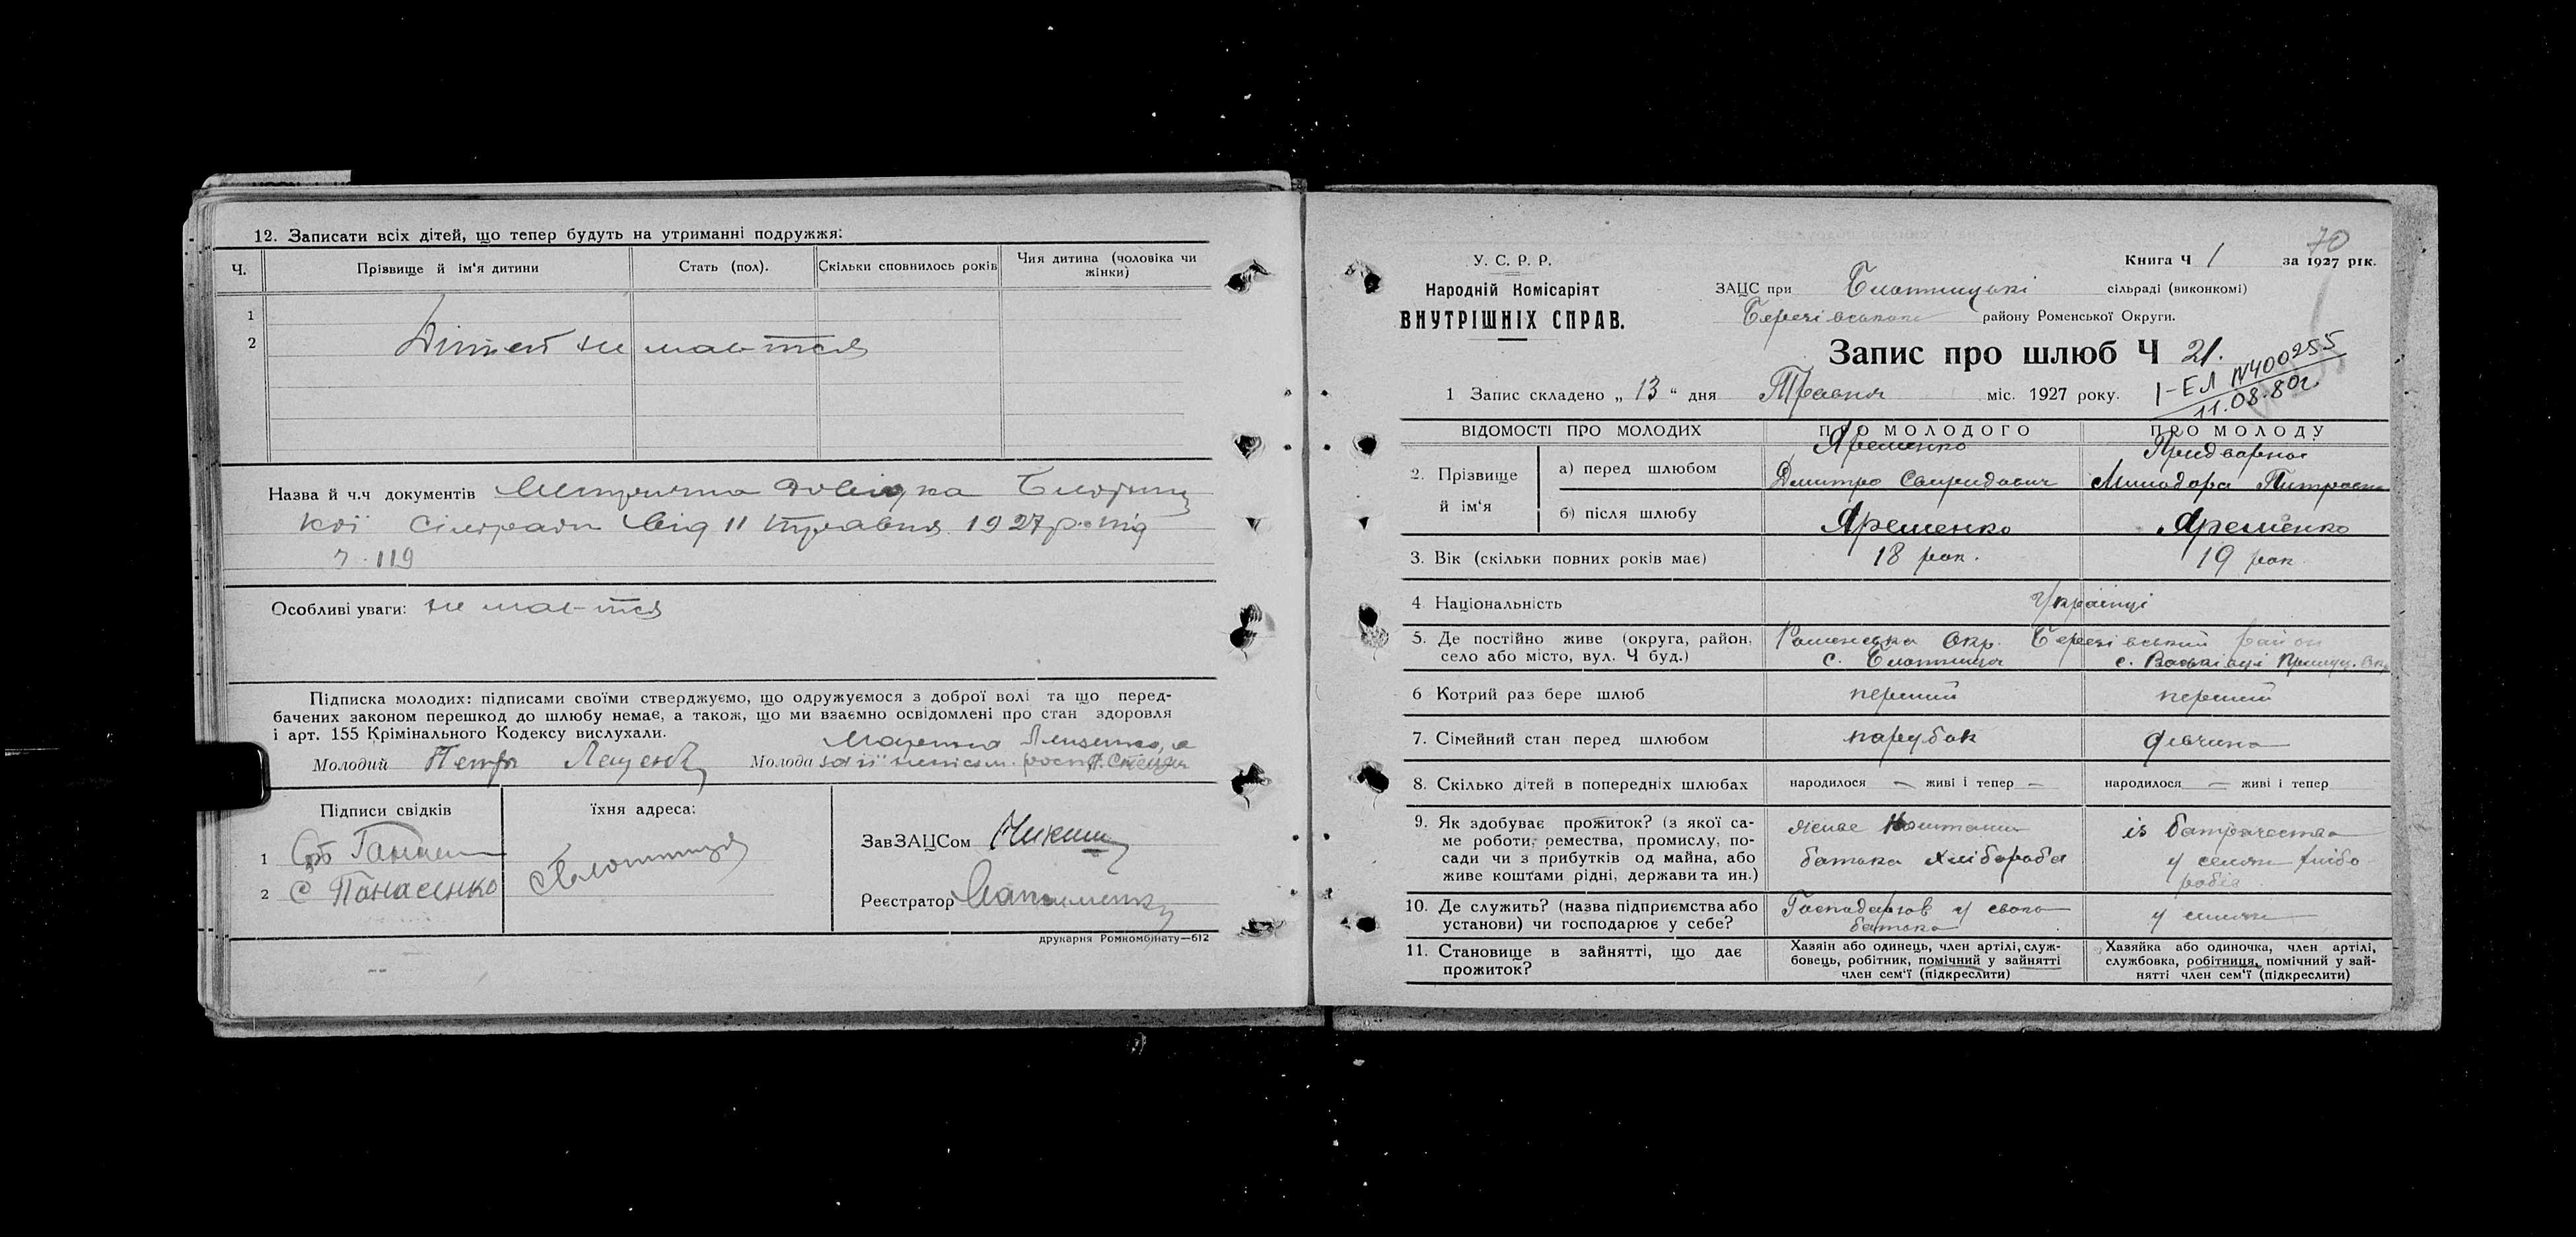 12. Записати всіх дітей, що тепер будуть на утриманні подружжя:
Ч. Прізвище й ім'я дитини Стать (пол). Скільки сповнилось років Чия дитина (чоловіка чи жінки)
1
2 Дітей не маеться
Назва й ч.ч документів Метрична довідка
кої сільради від 11 травня 1927 р. під
ч. 119
Особливі уваги: не маеться
Підписка молодих: підписами своїми стверджуємо, що одружуємося з доброї волі та що перед-
бачених законом перешкод до шлюбу немає, а також, що ми взаємно освідомлені про стан здоровля
і арт. 155 Крімінального Кодексу вислухали.
Молодий Петро Молода
Підписи свідків їхня адреса:
1
2 С Панасенко
ЗавЗАЦСом
Реєстратор
друкарня Ромкомбінату—612
70
У. С. Р. Р.
Народній Комісаріят
ВНУТРІШНІХ СПРАВ.
Книга Ч 1 за 1927 рік.
ЗАЦС при сільраді (виконкомі)
району Роменської Округи.
Запис про шлюб Ч 21.
I-ЕЛ №400255
11.08.80г
1 Запис складено „ 13 “ дня Травня міс. 1927 року.
ВІДОМОСТІ ПРО МОЛОДИХ ПРО МОЛОДОГО ПРО МОЛОДУ
2. Прізвище й ім'я
а) перед шлюбом Яременко Дмитро Свиридович Придворная Минодора
б) після шлюбу Яременко Яременко
3. Вік (скільки повних років має) 18 рок. 19 рок
4 Національність Українці
5. Де постійно живе (округа, район, село або місто, вул. Ч буд.) Роменська Окр. район
с. с.
6 Котрий раз бере шлюб перший перший
7. Сімейний стан перед шлюбом парубок дівчина
8. Скілько дітей в попередніх шлюбах народилося — живі і тепер — народилося — живі і тепер
9. Як здобуває прожиток? (з якої са-
ме роботи, ремества, промислу, по-
сади чи з прибутків од майна, або
живе коштами рідні, держави та ин.)
живе коштами
батька хлібороба
із батрачества
у семьи хлібо
робів
10. Де служить? (назва підприємства або
установи) чи господарює у себе?
у свого
батька
у семьи
11. Становище в зайнятті, що дає
прожиток?
Хазяін або одинець, член артілі, служ-
бовець, робітник, помічний у зайнятті
член сем'ї (підкреслити)
Хазяйка або одиночка, член артілі,
службовка, робітниця, помічний у зай-
нятті член сем'ї (підкреслити)